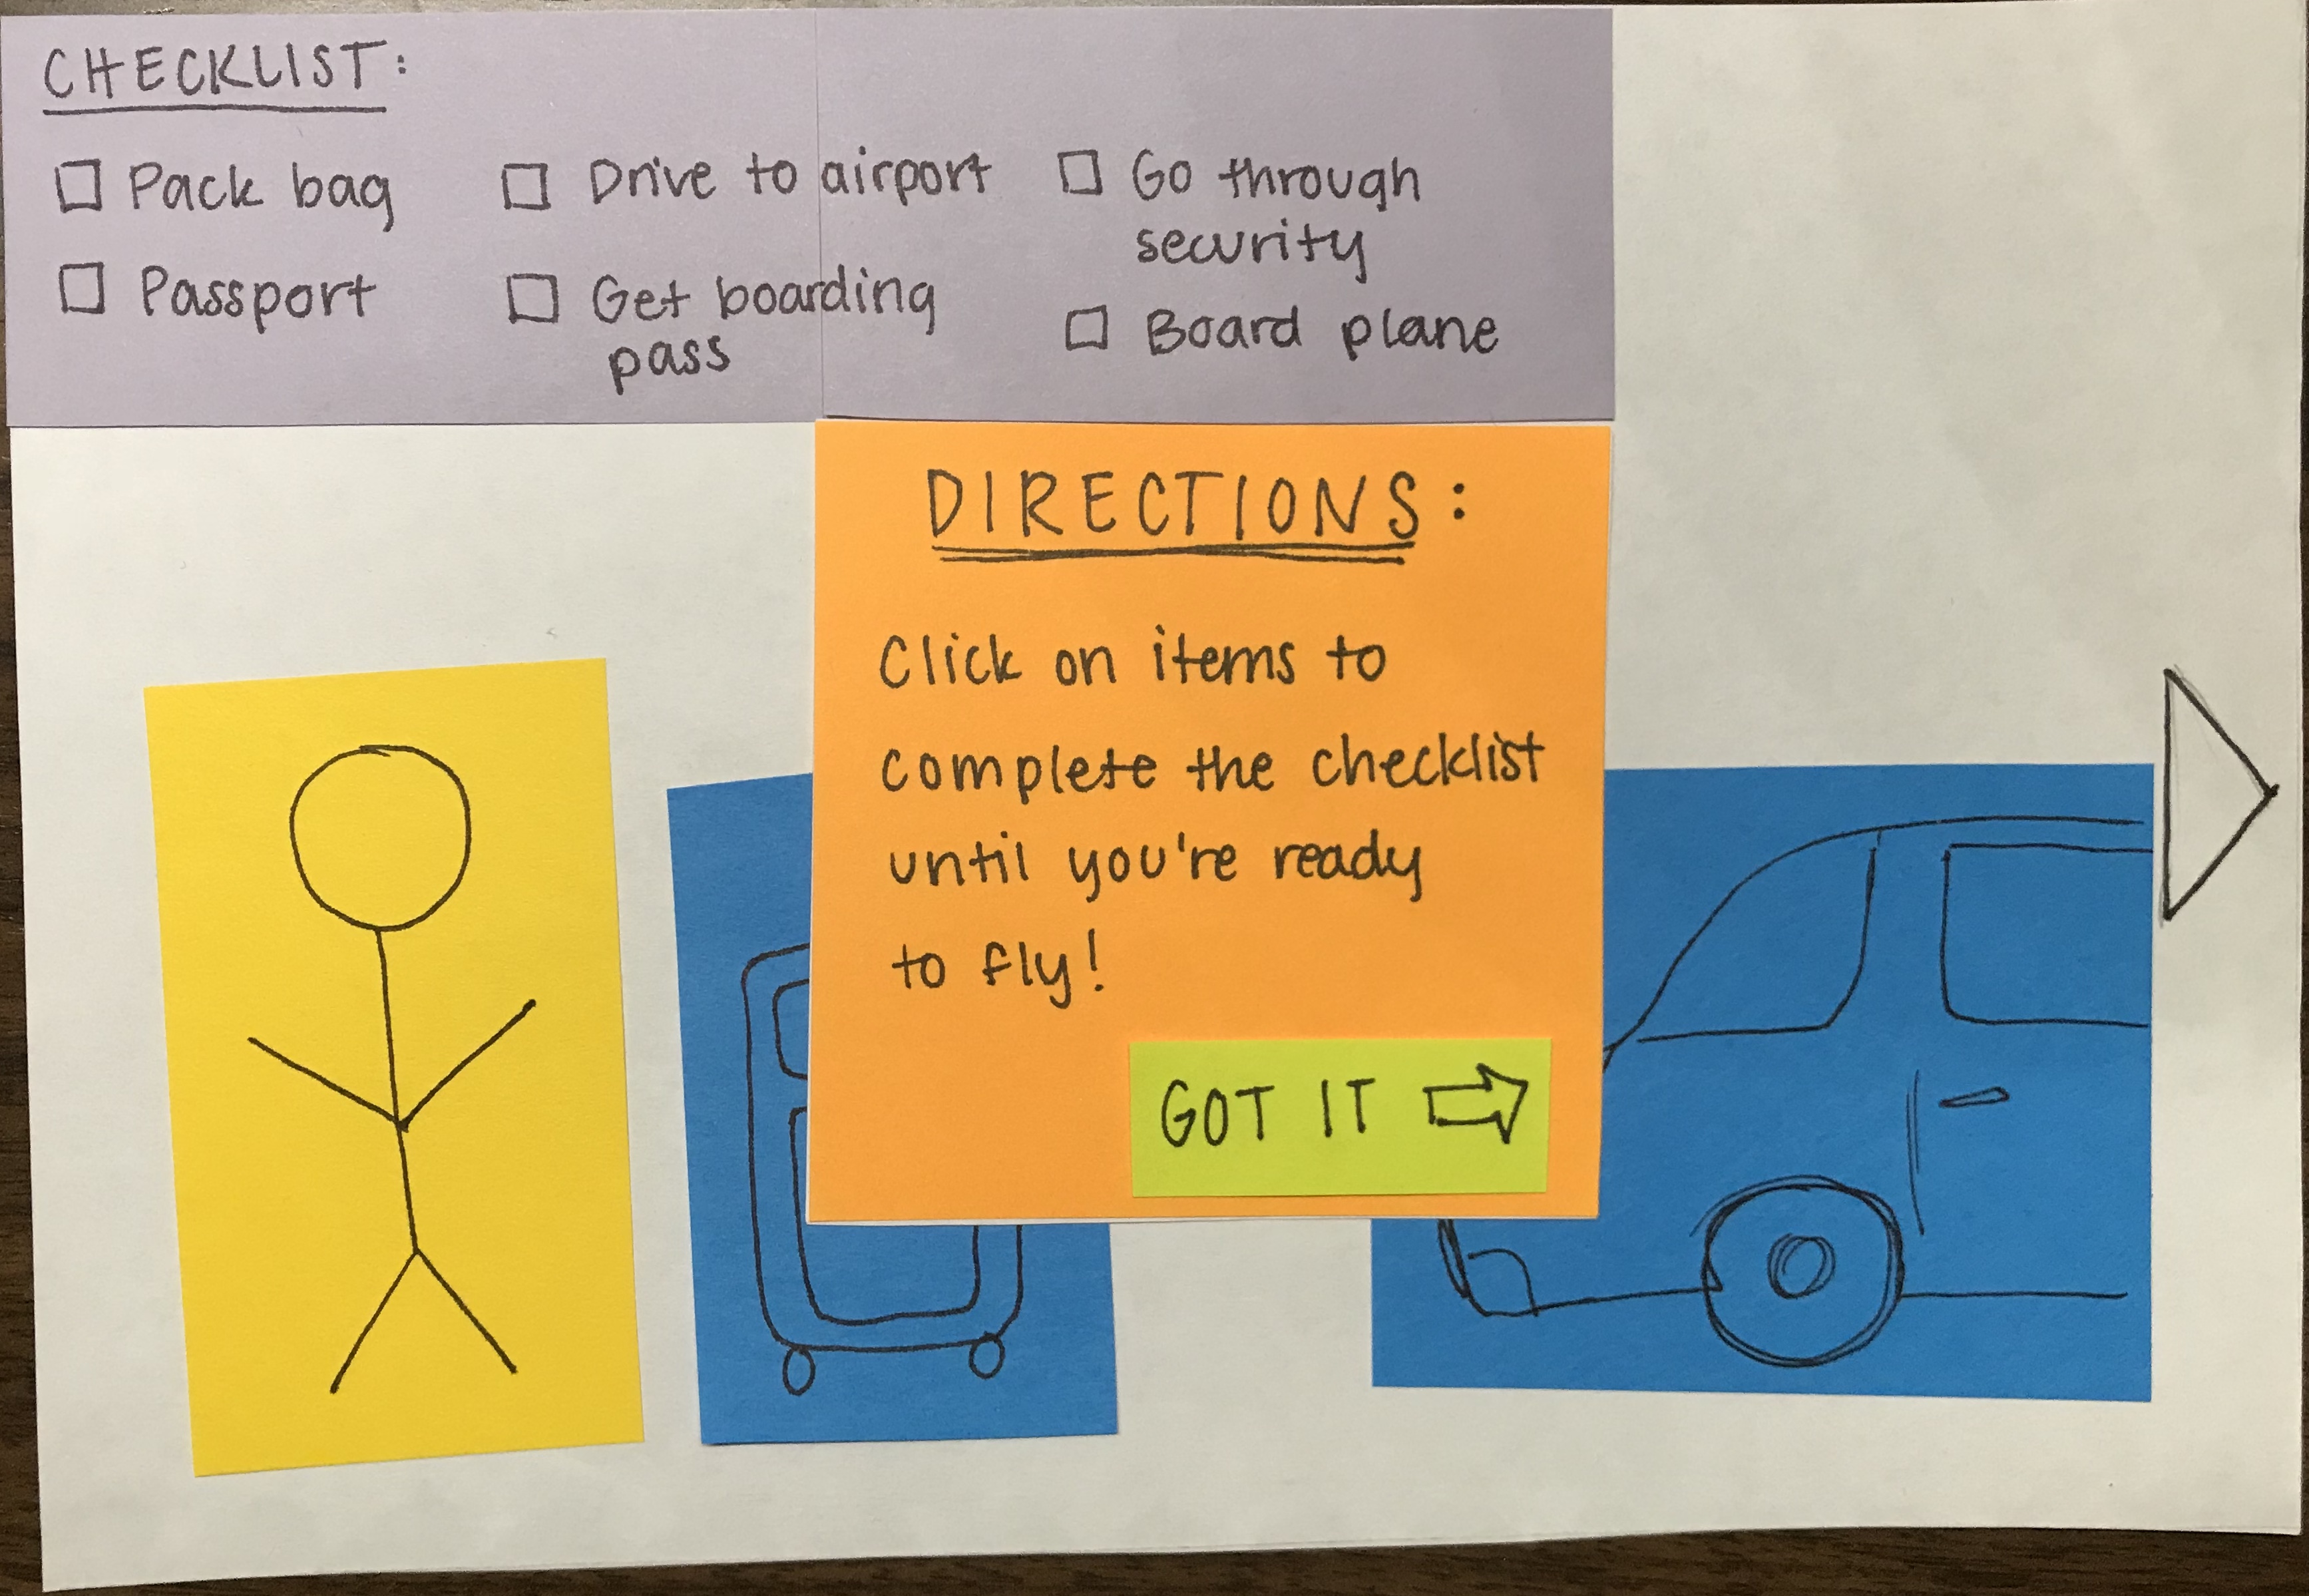 CHECKLIST:
□ Pack bag
□ Passport
□ Drive to airport
□ Get boarding
pass
□ Go through
security
□ Board plane
DIRECTIONS:
Click on items to
complete the checklist
until you're ready
to fly!
GOT IT ⇨